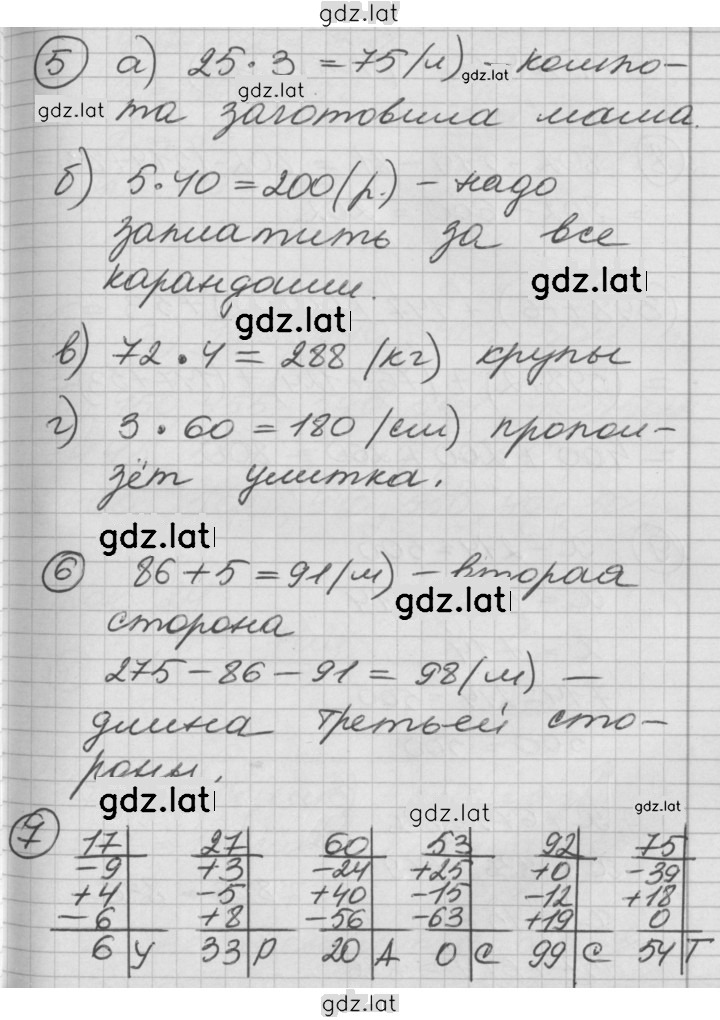 gdz.lat
⑤ а) 25·3 = 75 (л) – компо-
gdz.lat
gdz.lat
gdz.lat
та заготовила мама.
б) 5·40 = 200 (р.) – надо
заплатить за все
карандаши.
gdz.lat
gdz.lat
в) 72·4 = 288 (кг) крупы
г) 3·60 = 180 (см) пропол-
зёт улитка.
gdz.lat
⑥ 86 + 5 = 91 (м) – вторая
gdz.lat
сторона
275 – 86 – 91 = 98 (м) –
длина третьей сто-
роны.
gdz.lat
gdz.lat
gdz.lat
⑦ 17 27 60 53 92 75
–9 +3 –24 +25 +0 –39
+4 –5 +40 –15 –12 +18
–6 +8 –56 –63 +19 0
6 У 33 Р 20 А 0 С 99 С 54 Т
gdz.lat